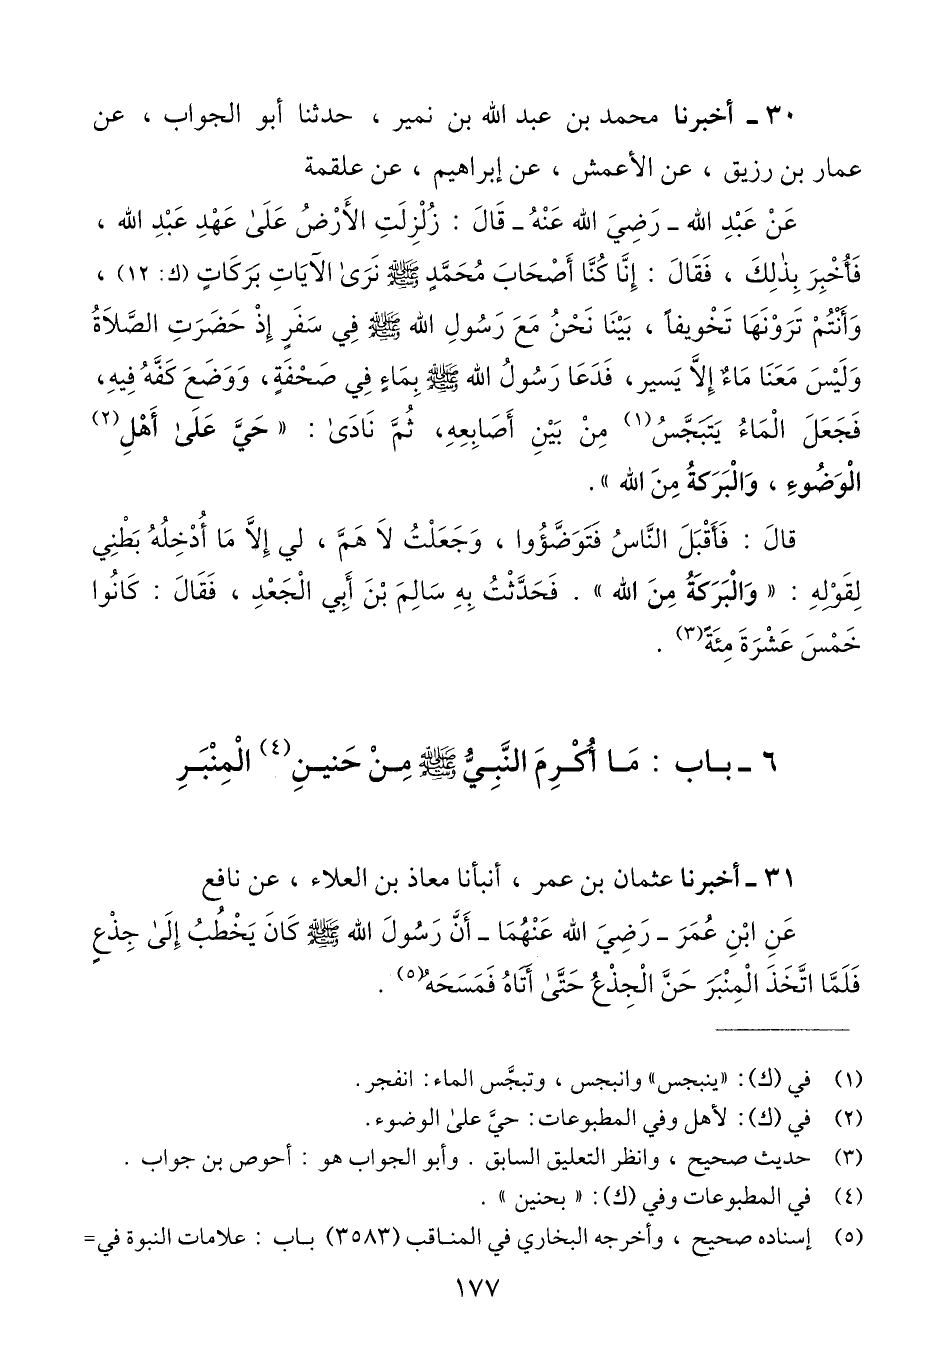 ٣٠ ـ أخبرنا محمد بن عبد الله بن نمير ، حدثنا أبو الجواب ، عن
عمار بن رزيق ، عن الأعمش ، عن إبراهيم ، عن علقمة
عَنْ عَبْدِ الله ـ رَضِيَ الله عَنْهُ ـ قَالَ : زُلْزِلَتِ الأَرْضُ عَلَىٰ عَهْدِ عَبْدِ الله ،
فَأُخْبِرَ بِذٰلِكَ ، فَقَالَ : إِنَّا كُنَّا أَصْحَابَ مُحَمَّدٍ ﷺ نَرَىٰ الآيَاتِ بَرَكَاتٍ (ك: ١٢) ،
وَأَنْتُمْ تَرَوْنَهَا تَخْوِيفاً ، بَيْنَا نَحْنُ مَعَ رَسُولِ الله ﷺ فِي سَفَرٍ إِذْ حَضَرَتِ الصَّلَاةُ
وَلَيْسَ مَعَنَا مَاءٌ إِلاَّ يَسير، فَدَعَا رَسُولُ الله ﷺ بِمَاءٍ فِي صَحْفَةٍ، وَوَضَعَ كَفَّهُ فِيهِ،
فَجَعَلَ الْمَاءُ يَتَبَجَّسُ(١) مِنْ بَيْنِ أَصَابِعِهِ، ثُمَّ نَادَىٰ : « حَيَّ عَلَىٰ أَهْلِ(٢)
الْوَضُوءِ ، وَالْبَرَكَةُ مِنَ الله ».
قالَ : فَأَقْبَلَ النَّاسُ فَتَوَضَّؤُوا ، وَجَعَلْتُ لاَ هَمَّ ، لي إِلاَّ مَا أُدْخِلُهُ بَطْنِي
لِقَوْلِهِ : « وَالْبَرَكَةُ مِنَ الله » . فَحَدَّثْتُ بِهِ سَالِمَ بْنَ أَبِي الْجَعْدِ ، فَقَالَ : كَانُوا
خَمْسَ عَشْرَةَ مِئَةً(٣) .
٦ ـ بـاب : مَـا أُكْـرِمَ النَّبِـيُّ ﷺ مِـنْ حَنيـنِ(٤) الْمِنْبَـرِ
٣١ ـ أخبرنا عثمان بن عمر ، أنبأنا معاذ بن العلاء ، عن نافع
عَنِ ابْنِ عُمَرَ ـ رَضِيَ الله عَنْهُمَا ـ أَنَّ رَسُولَ الله ﷺ كَانَ يَخْطُبُ إِلَىٰ جِذْعٍ
فَلَمَّا اتَّخَذَ الْمِنْبَرَ حَنَّ الْجِذْعُ حَتَّىٰ أَتَاهُ فَمَسَحَهُ(٥) .
(١) في (ك): «ينبجس» وانبجس ، وتبجَّس الماء: انفجر.
(٢) في (ك): لأهل وفي المطبوعات: حيَّ علىٰ الوضوء.
(٣) حديث صحيح ، وانظر التعليق السابق . وأبو الجواب هو : أحوص بن جواب .
(٤) في المطبوعات وفي (ك): « بحنين » .
(٥) إسناده صحيح ، وأخرجه البخاري في المنـاقب (٣٥٨٣) بـاب : علامات النبوة في=
١٧٧